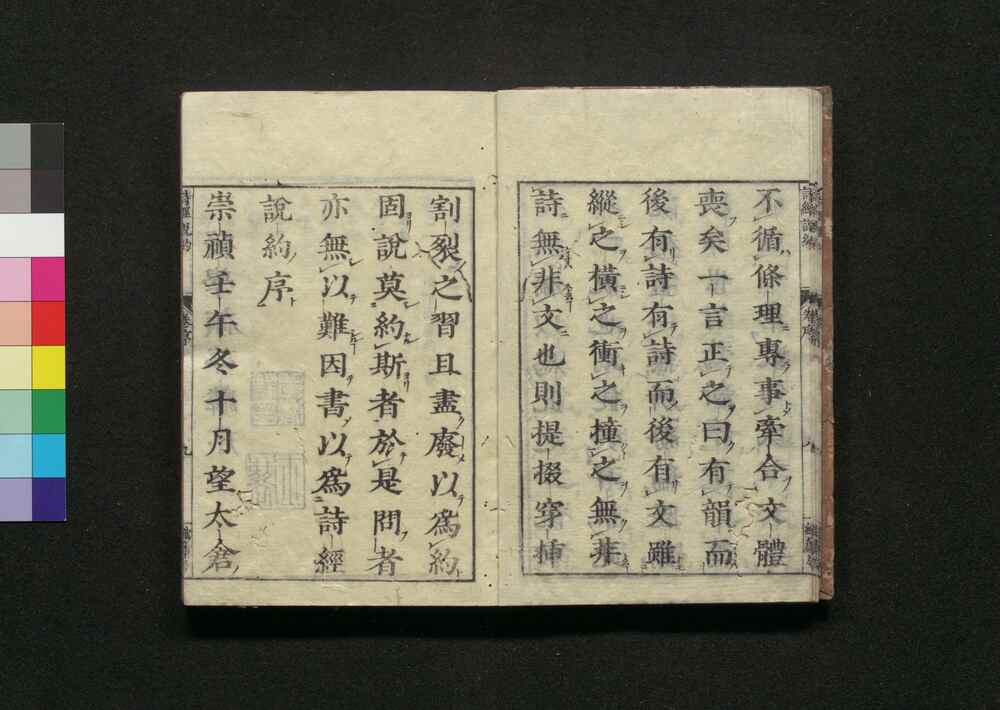 不循條理專事牽合文體
喪矣一言正之曰有韻而
後有詩有詩而後有文雖
縱之橫之衝之撞之無非
詩無非文也則提掇穿插
割裂之習且盡廢以爲約
固說莫約斯者於是問者
亦無以難因書以爲詩經
說約序
崇禎壬午冬十月望太倉